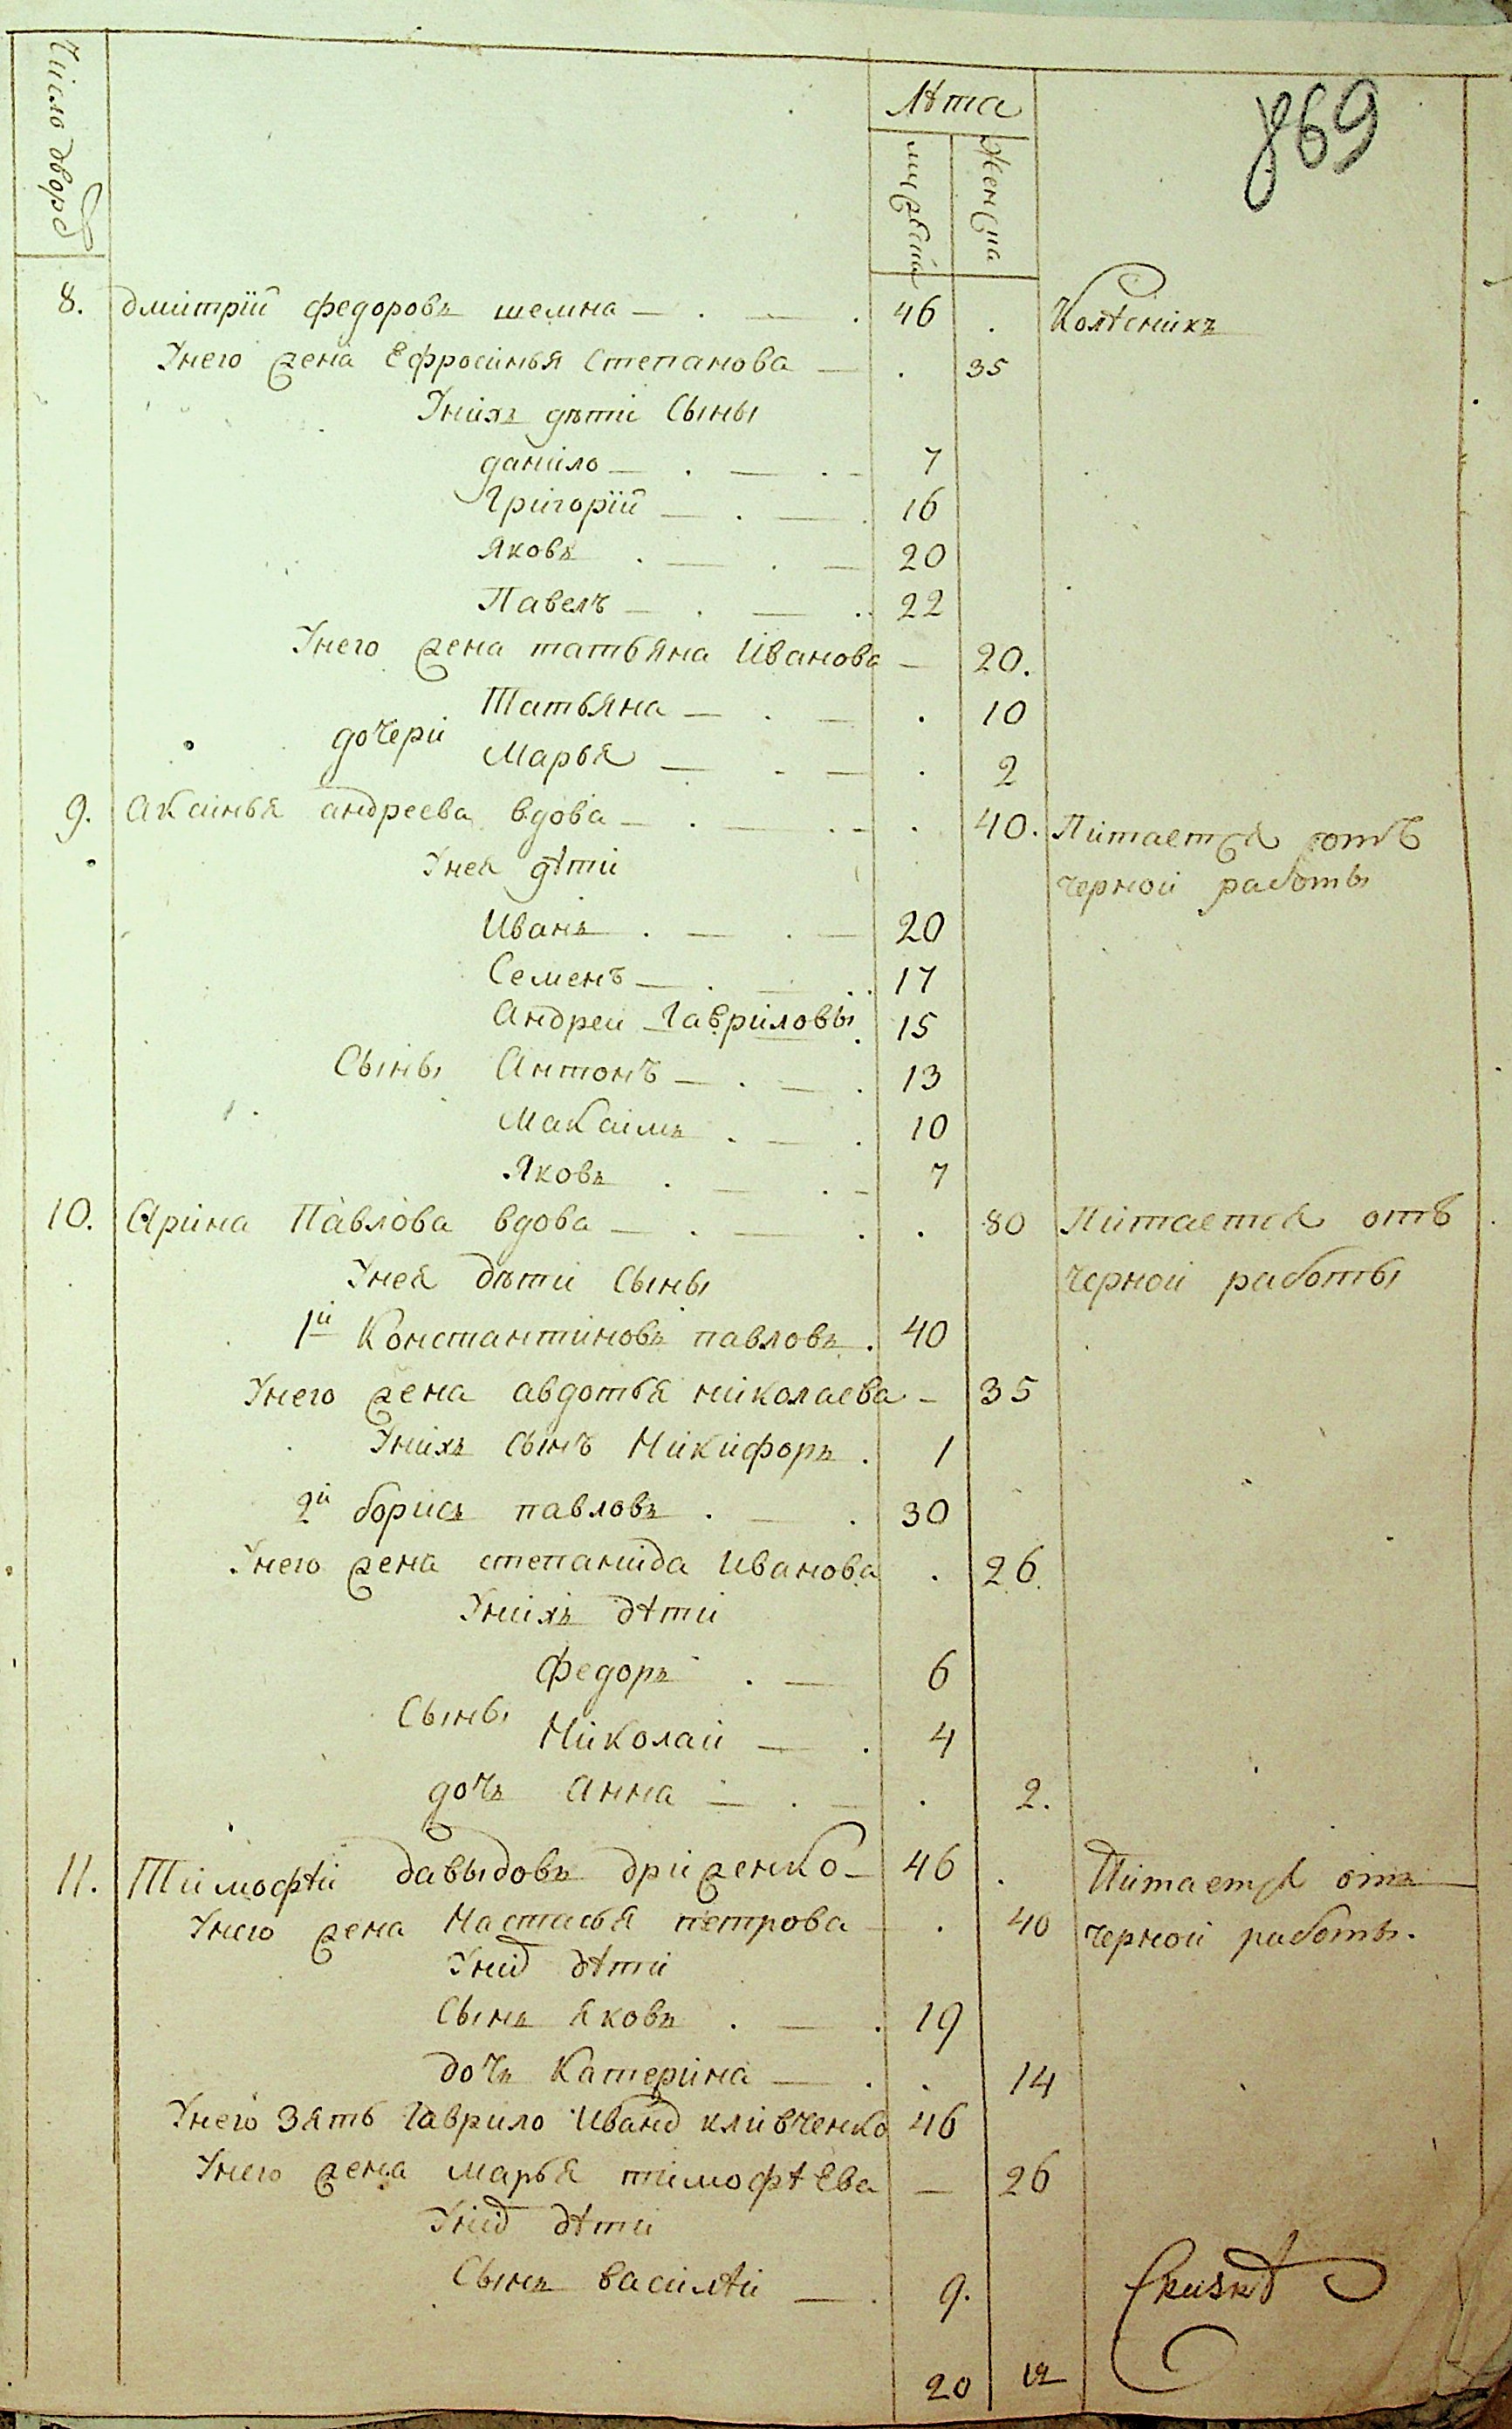 Число дворовъ
Лѣта
869
мужеска
женска
8. дмитрїй федоровъ шемна — . — . 46 . Колѣсникъ
Унего жена Ефросинья Степанова — . 35
Унихъ дѣти Сыны
данило — . — . - 7
Григорїй — . — . 16
Яковъ . — . — 20
Павелъ — . — . 22
Унего жена татьяна Иванова — 20.
Татьяна — . — . 10
дочери
Марья — . — . 2
9. Аксинья андреева вдова — . — . - . 40. Питается отъ
Унея дѣти
черной работы
Иванъ . — . — 20
Семенъ — . — . . 17
Андреи Гавриловы . 15
Сыны Антонъ — . — . 13
Максимъ . — . 10
Яковъ . — . - 7
10. Арина Павлова вдова — . — . . 80 Питается отъ
Унея дѣти Сыны
черной работы
1й Константиновъ павловъ . 40
Унего жена авдотья николаева - 35
Унихъ сынъ Никифоръ . 1
2й борисъ павловъ . — . 30
Унего жена степанида Иванова . 26.
Унихъ дѣти
Федоръ . — 6
Сыны
Николаи — . 4
дочь Анна — . — . 2.
11. Тимофѣи давыдовъ дриженко — 46 . Питается отъ
Унего жена Настасья петрова — . 40 черной работы.
Униⷯ дѣти
Сынъ Яковъ . — . 19
дочь Катерина — . . 14
Унего Зять Гаврило Иваноⷡ кливченко 46
Унего жена марья тимофѣева — 26
Униⷯ дѣти
Сынъ василѣи — . 9.
20 12